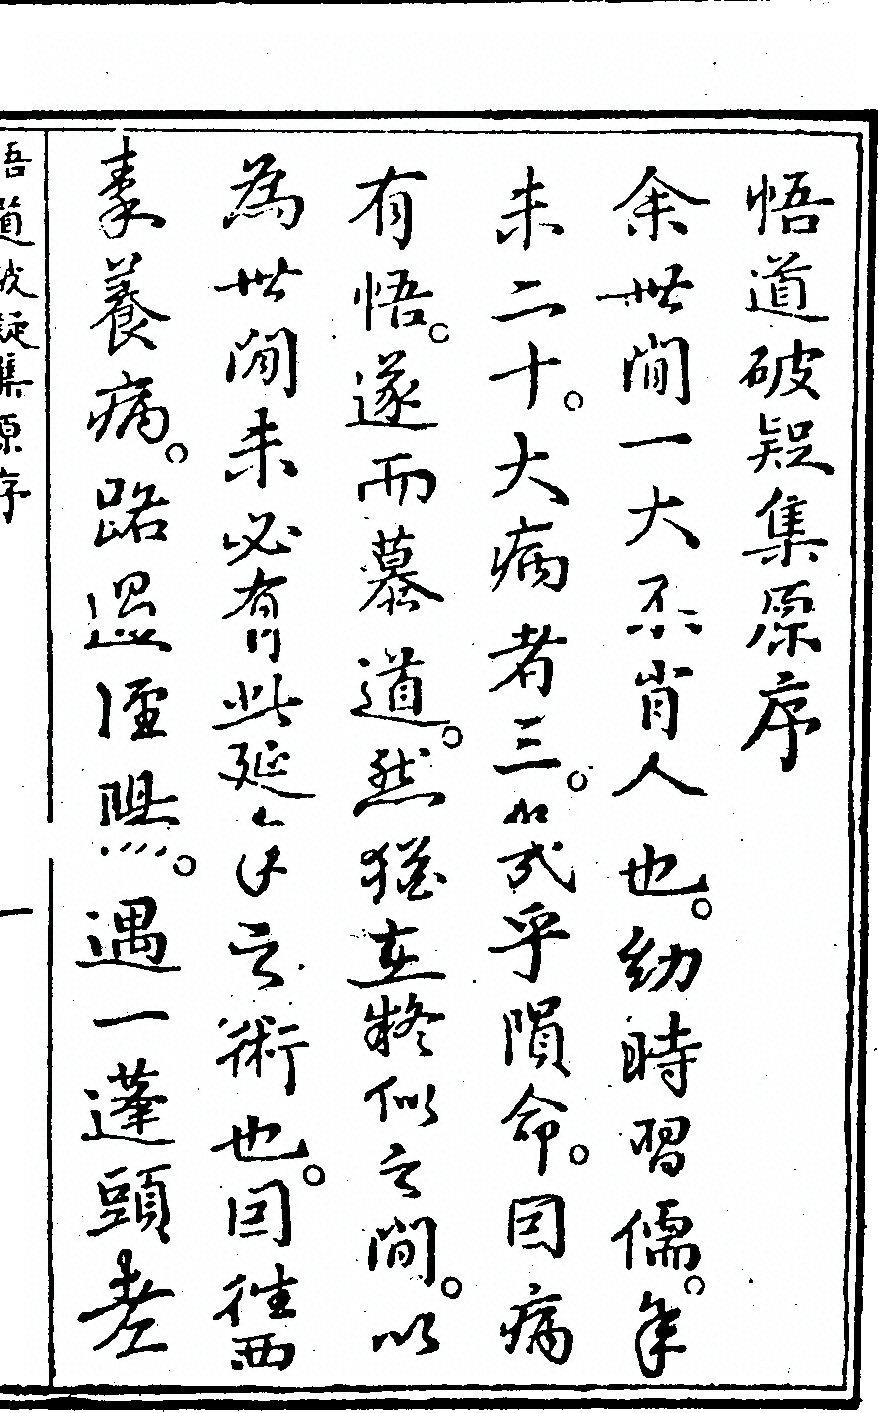 悟道破疑集原序
余世間一大不肖人也。幼時習儒。年
未二十。大病者三。幾乎隕命。因病
有悟。遂而慕道。然猶在疑似之間。以
為世間未必有此延年之術也。因往西
秦養病。路過。遇一蓬頭老
悟道破疑集原序
一